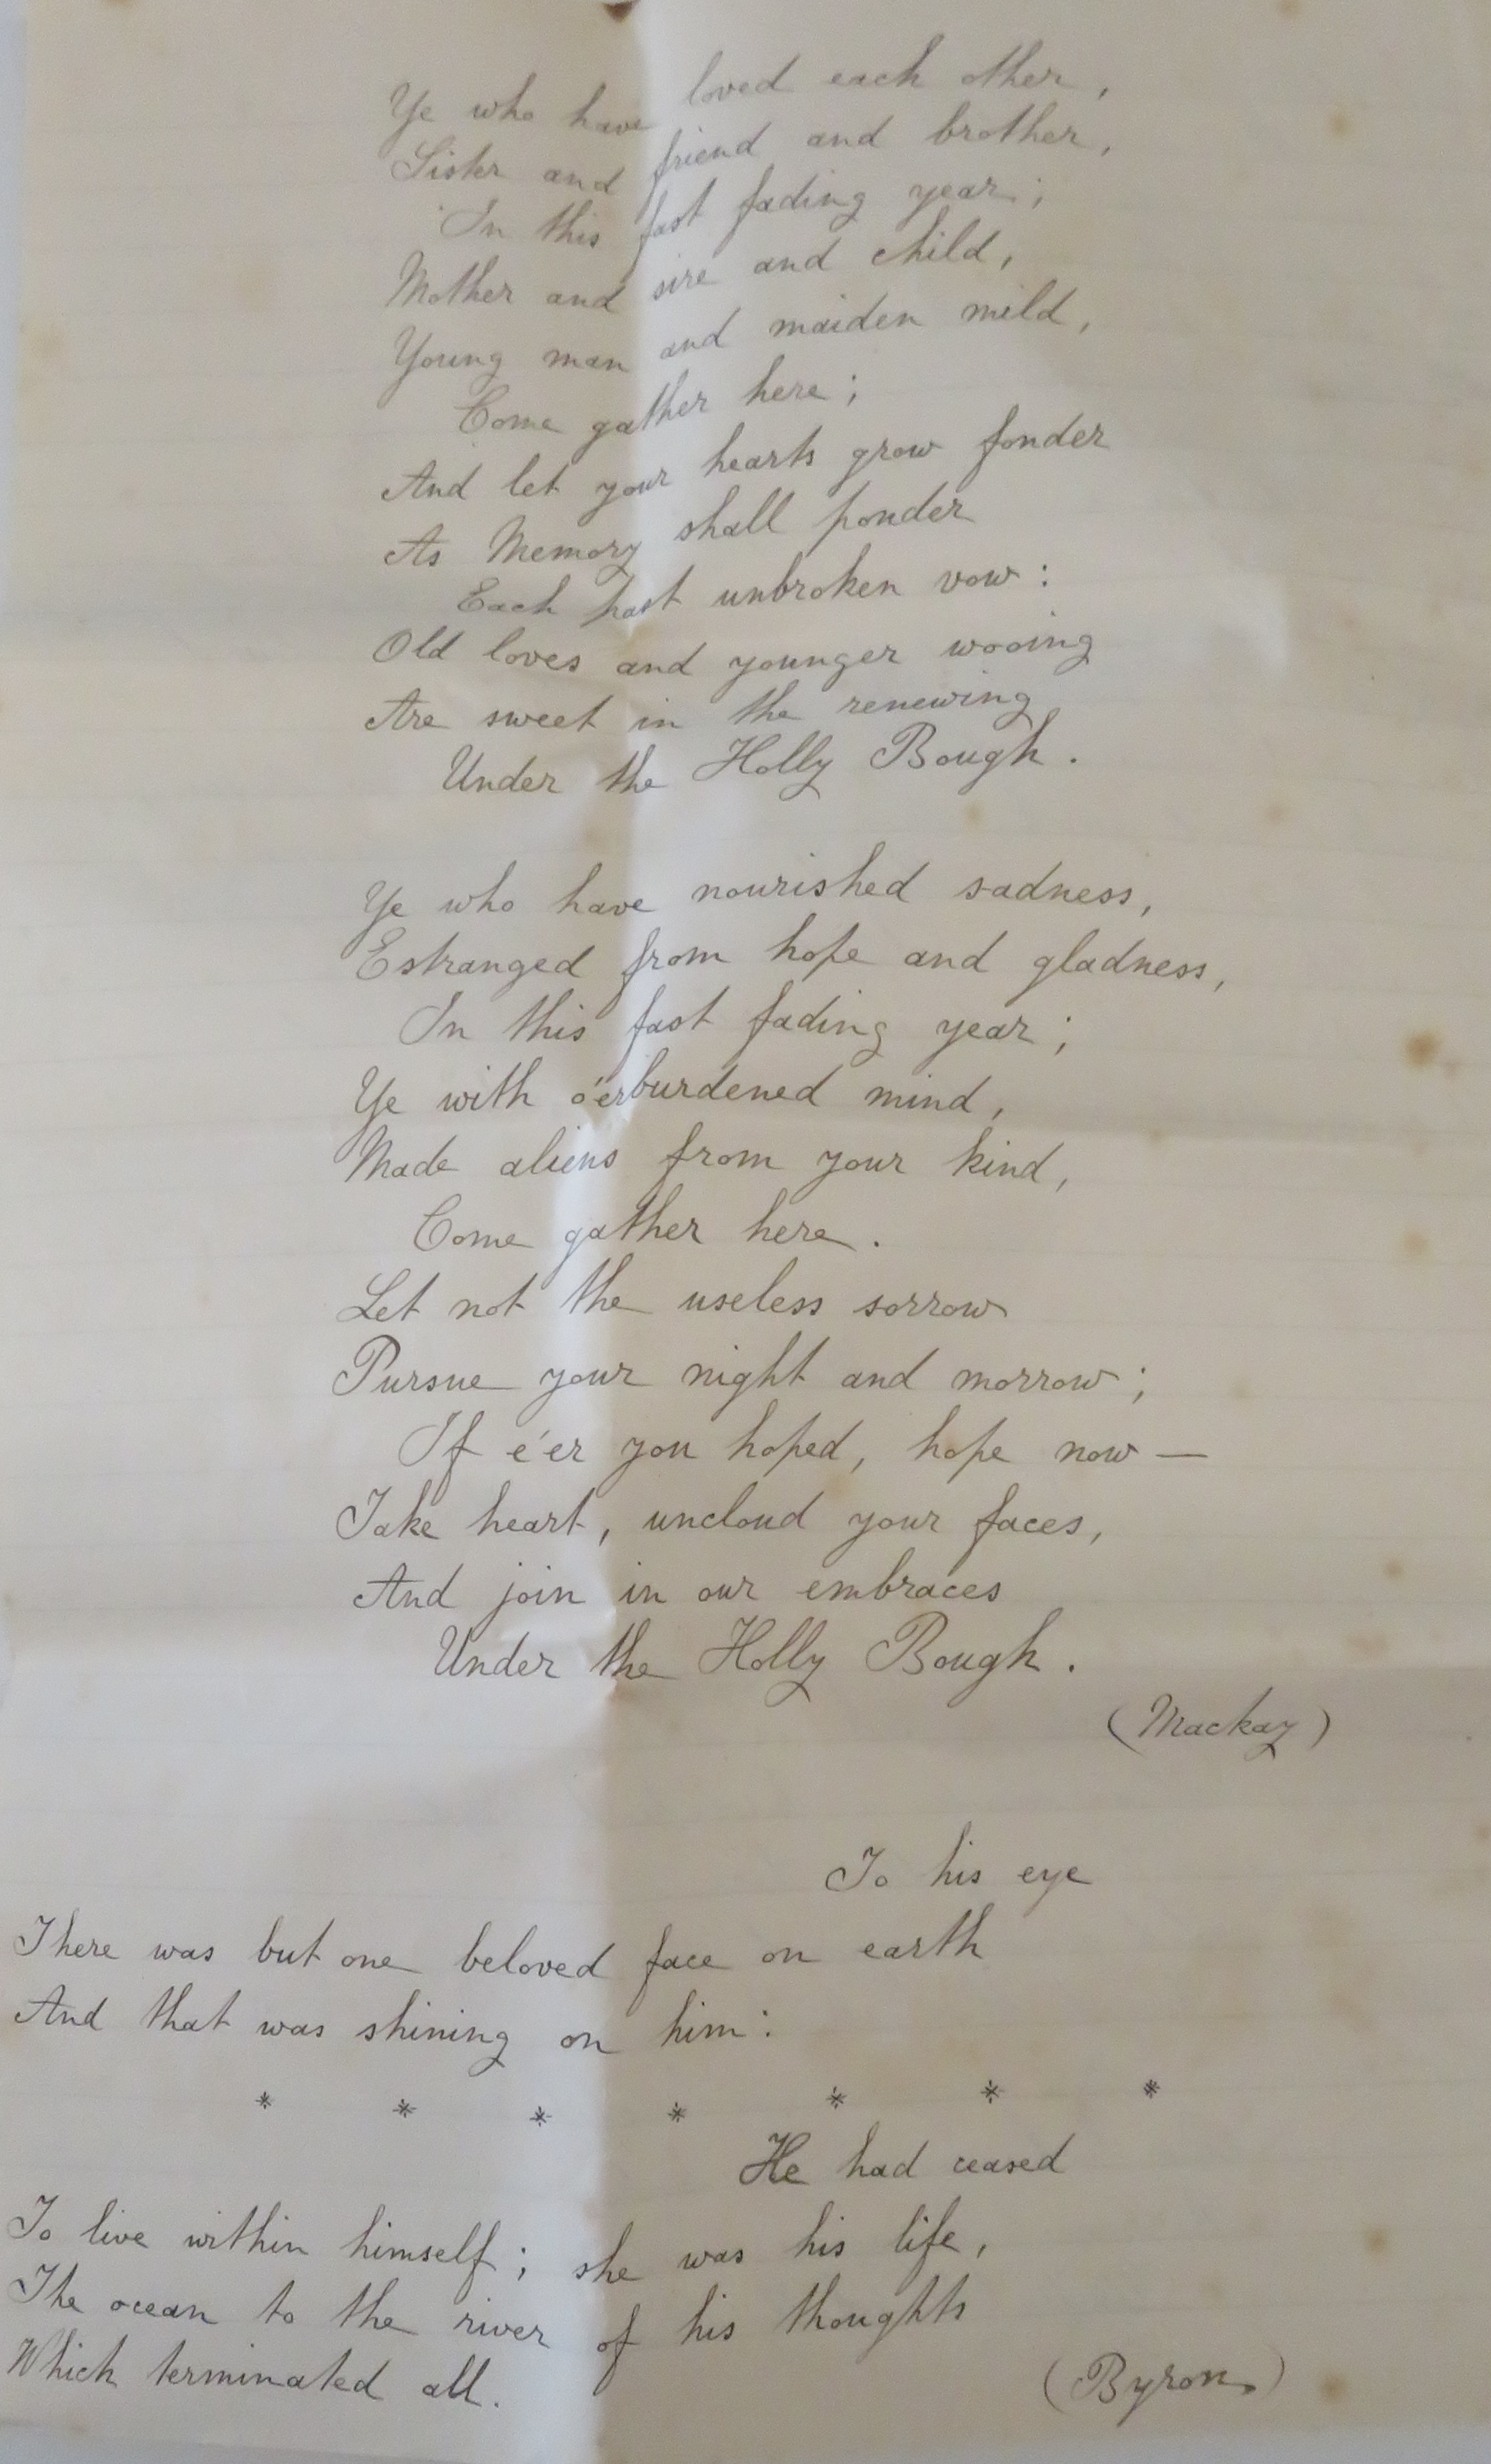 Ye who have loved each other,
Sister and friend and brother,
In this fast fading year;
Mother and sire and child,
Young man and maiden mild,
Come gather here;
And let your hearts grow fonder
As Memory shall ponder
Each past unbroken vow:
Old loves and younger wooing
Are sweet in the renewing
Under the Holly Bough.
Ye who have nourished sadness,
Estranged from hope and gladness,
In this fast fading year;
Ye with o'erburdened mind,
Made aliens from your kind,
Come gather here.
Let not the useless sorrow
Pursue your night and morrow;
If e'er you hoped, hope now —
Take heart, uncloud your faces,
And join in our embraces
Under the Holly Bough.
(Mackay)
To his eye
There was but one beloved face on earth
And that was shining on him:
* * * * * * *
He had ceased
To live within himself; she was his life,
The ocean to the river of his thoughts
Which terminated all.
(Byron)